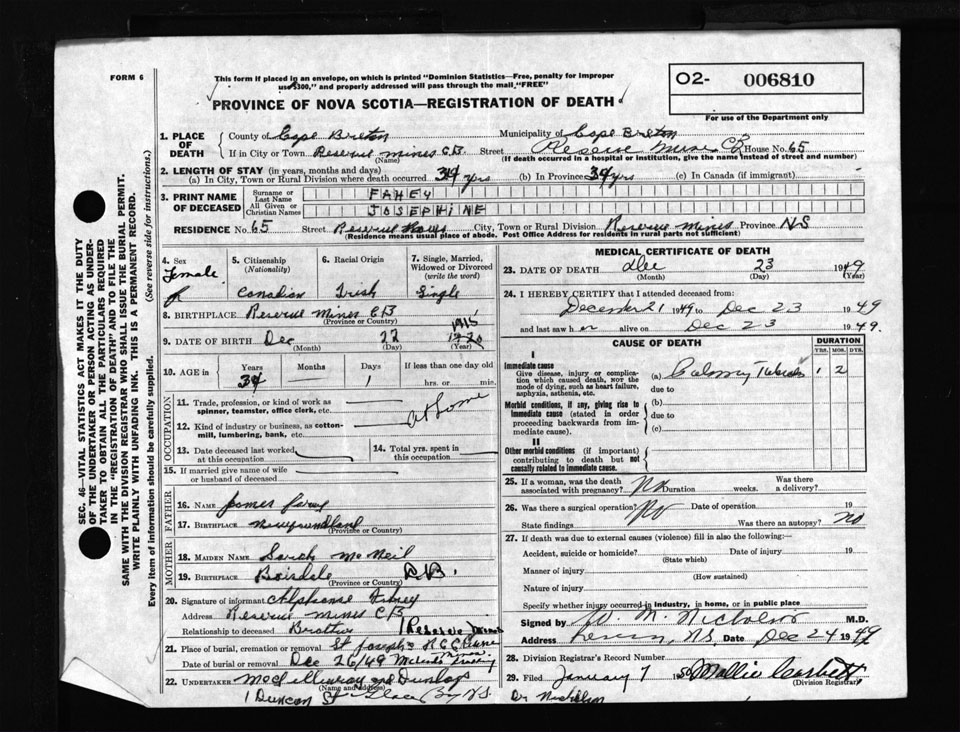 FORM 6
This form if placed in an envelope, on which is printed "Dominion Statistics—Free, penalty for improper
use $300," and properly addressed will pass through the mail "FREE"
O2- 006810
For use of the Department only
PROVINCE OF NOVA SCOTIA—REGISTRATION OF DEATH
SEC. 46—VITAL STATISTICS ACT MAKES IT THE DUTY
OF THE UNDERTAKER OR PERSON ACTING AS UNDER-
TAKER TO OBTAIN ALL THE PARTICULARS REQUIRED
IN THE "REGISTRATION OF DEATH" AND TO FILE THE
SAME WITH THE DIVISION REGISTRAR WHO SHALL ISSUE THE BURIAL PERMIT.
WRITE PLAINLY WITH UNFADING INK. THIS IS A PERMANENT RECORD.
Every item of information should be carefully supplied. (See reverse side for instructions.)
1. PLACE OF DEATH
County of Cape Breton Municipality of Cape Breton
If in City or Town Reserve Mines C.B. Street Reserve Mines CB House No. 65
(Name) (If death occurred in a hospital or institution, give the name instead of street and number)
2. LENGTH OF STAY (in years, months and days)
(a) In City, Town or Rural Division where death occurred 34 yrs (b) In Province 34 yrs (c) In Canada (if immigrant)
3. PRINT NAME OF DECEASED
Surname or Last Name FAHEY
All Given or Christian Names JOSEPHINE
RESIDENCE No. 65 Street Reserve Rows City, Town or Rural Division Reserve Mines Province NS
(Residence means usual place of abode. Post Office Address for residents in rural parts not sufficient)
4. Sex Female
5. Citizenship (Nationality) Canadian
6. Racial Origin Irish
7. Single, Married, Widowed or Divorced (write the word) Single
8. BIRTHPLACE Reserve Mines CB
(Province or Country)
9. DATE OF BIRTH Dec 22 1915
(Month) (Day) (Year)
10. AGE in Years Months Days If less than one day old
34 — 1 hrs. or min.
OCCUPATION
11. Trade, profession, or kind of work as
spinner, teamster, office clerk, etc. At Home
12. Kind of industry or business, as cotton-
mill, lumbering, bank, etc.
13. Date deceased last worked at this occupation
14. Total yrs. spent in this occupation
15. If married give name of wife
or husband of deceased
FATHER
16. NAME James Fahey
17. BIRTHPLACE Newfoundland
(Province or Country)
MOTHER
18. MAIDEN NAME Sarah McNeil
19. BIRTHPLACE Boisdale C.B.
(Province or Country)
20. Signature of informant Alphonse Fahey
Address Reserve Mines CB
Relationship to deceased Brother
21. Place of burial, cremation or removal St Joseph's R C Reserve Mines
Date of burial or removal Dec 26/49
22. UNDERTAKER McGillivray and Dunlop
(Name and address)
1 Duncan St Glace Bay N.S.
MEDICAL CERTIFICATE OF DEATH
23. DATE OF DEATH Dec 23 1949
(Month) (Day) (Year)
24. I HEREBY CERTIFY that I attended deceased from:
December 21 1949 to Dec 23 1949
and last saw h er alive on Dec 23 1949.
CAUSE OF DEATH
DURATION
YRS. MOS. DYS.
I
Immediate cause
Give disease, injury or compli-
cation which caused death, NOT the
mode of dying, such as heart failure,
asphyxia, asthenia, etc.
(a) 1 2
due to
Morbid conditions, if any, giving rise to
immediate cause (stated in order
proceeding backwards from im-
mediate cause).
(b)
due to
(c)
II
Other morbid conditions (if important)
contributing to death but not
causally related to immediate cause.
25. If a woman, was the death
associated with pregnancy? No Duration weeks. Was there
a delivery?
26. Was there a surgical operation? No Date of operation 19
State findings Was there an autopsy? No
27. If death was due to external causes (violence) fill in also the following:—
Accident, suicide or homicide? Date of injury 19
(State which)
Manner of injury
(How sustained)
Nature of injury
Specify whether injury occurred in industry, in home, or in public place
Signed by M. Nicholson M.D.
Address N.S. Date Dec 24 1949
28. Division Registrar's Record Number
29. Filed January 7 1950 Mollie Corbett
(Division Registrar)
Dr Nicholson